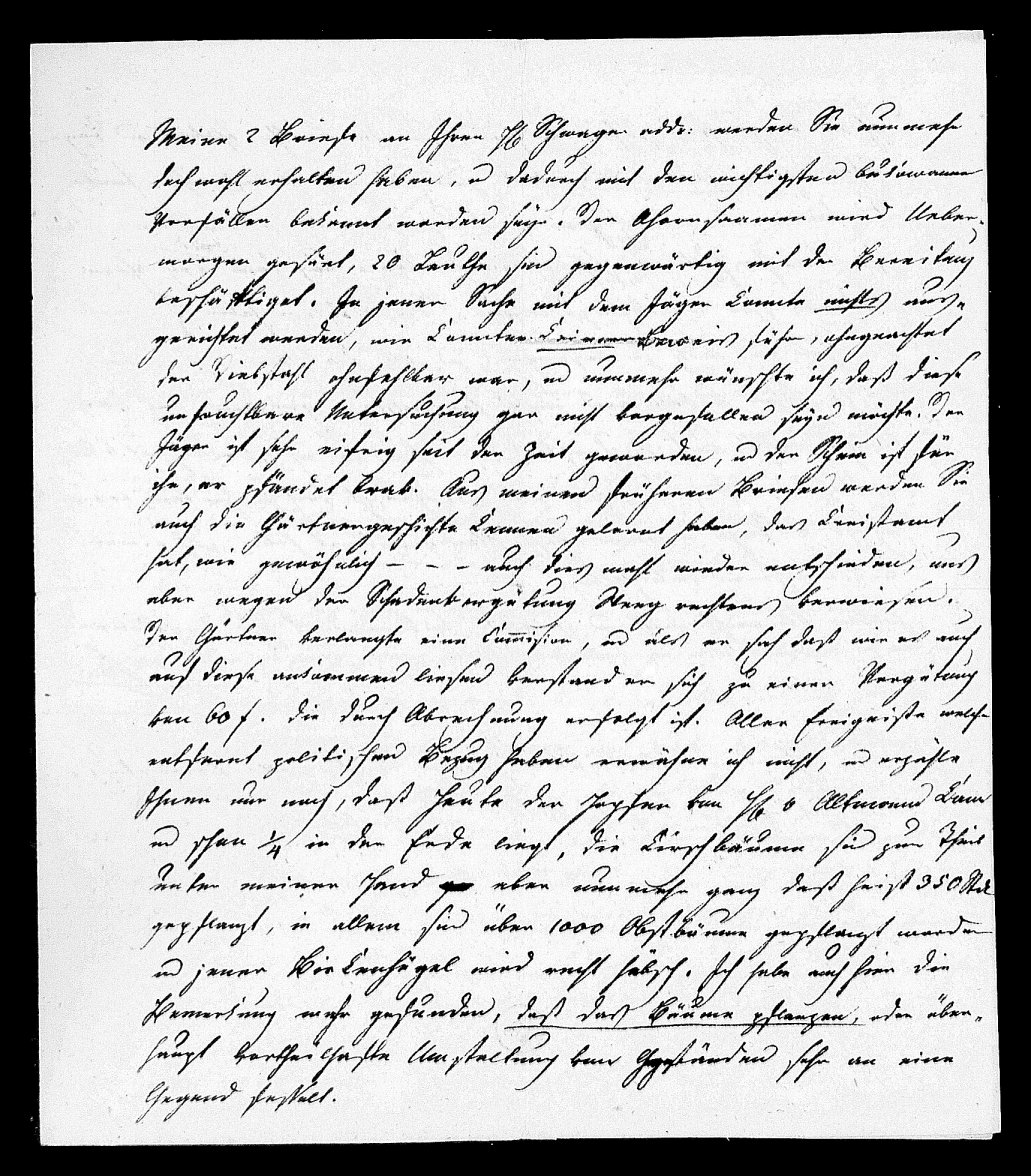 Meine 2 Briefe an Ihren H Schwager addr: werden Sie nunmehr
doch wohl erhalten haben, u dadurch mit den wichtigsten
Vorfällen bekannt worden seyn. Der Ahornsaamen wird Ueber-
morgen gesäet, 20 Leuthe sin gegenwärtig mit der Bereitung
beschäftiget. In jener Sache mit dem Jäger konnte nichts aus-
gerichtet werden, wir konnten keinen Beweis führ, ohngeachtet
der Diebstahl ohnfehlbar war, u nunmehr wünschte ich, daß diese
unfruchtbare Untersuchung gar nicht vorgefallen seyn möchte. Der
Jäger ist sehr eifrig seit der Zeit geworden, u der Schein ist für
ihn, er pfändet brav. Aus meinen früheren Briefen werden Sie
auch die Gärtnergeschichte kennen gelernt haben, das Kreisamt
hat, wie gewöhnlich – – – auch dies mahl wieder entschieden, uns
aber wegen der Schadensvergütung Weeg rechtens verwiesen.
Der Gärtner verlangte eine Commision, u als er sah daß wir es auch
auf diese ankommen liesen verstand er sich zu einer Vergütung
von 60 f. die durch Abrechnung erfolgt ist. Aller Ereigniße welche
entfernt politischen Bezug haben erwähne ich nicht, u erzähle
Ihnen nur noch, daß heute der Hopfen von H v Altmann kam
u schon 1/4 in der Erde liegt, die Kirschbäume sin zum Theil
unter meiner Hand aber nunmehr ganz daß heist 350 Stck
gepflanzt, in allem sin über 1000 Obstbäume gepflanzt worden
u jener Birkenhügel wird recht hübsch. Ich habe auch hier die
Bemerkung wahr gefunden, daß das Bäume pflanzen, oder über-
haupt vortheilhafte Umstaltung von Gegenständen sehr an eine
Gegend fesselt.